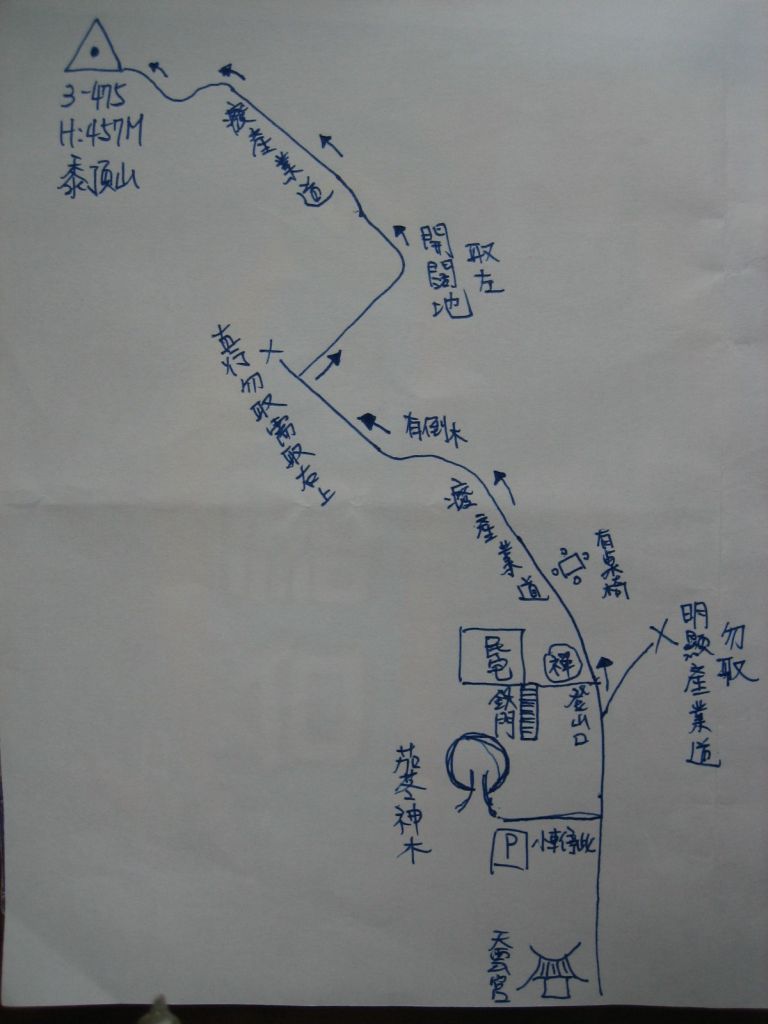 3-475
H:457M
泰頂山
廢產業道
開闊地
取左
直行勿取需取右上
有倒木
廢產業道
有桌椅
勿取
明顯產業道
民宅
禪
鉄門
登山口
茄苳神木
P
小車停此
天雲宮